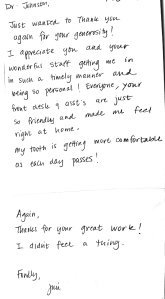 Dr. Johnson,
Just wanted to thank you
again for your generosity!
I appreciate you and your
wonderful staff getting me in
in such a timely manner and
being so personal! Everyone, your
front desk & asst's are just
so friendly and made me feel
right at home.
my tooth is getting more comfortable
as each day passes!
Again,
Thanks for your great work!
I didnt feel a thing.
Fondly,